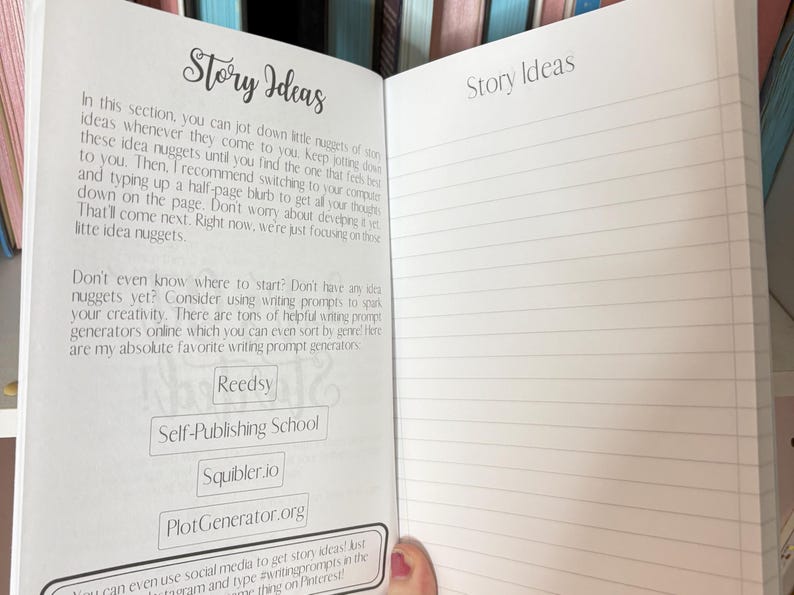 Story Ideas
In this section, you can jot down little nuggets of story
ideas whenever they come to you. Keep jotting down
these idea nuggets until you find the one that feels best
to you. Then, I recommend switching to your computer
and typing up a half-page blurb to get all your thoughts
down on the page. Don't worry about develping it yet.
That'll come next. Right now, we're just focusing on those
litte idea nuggets.
Don't even know where to start? Don't have any idea
nuggets yet? Consider using writing prompts to spark
your creativity. There are tons of helpful writing prompt
generators online which you can even sort by genre! Here
are my absolute favorite writing prompt generators:
Reedsy
Self-Publishing School
Squibler.io
PlotGenerator.org
You can even use social media to get story ideas! Just
Instagram and type #writingprompts in the
same thing on Pinterest!
Story Ideas